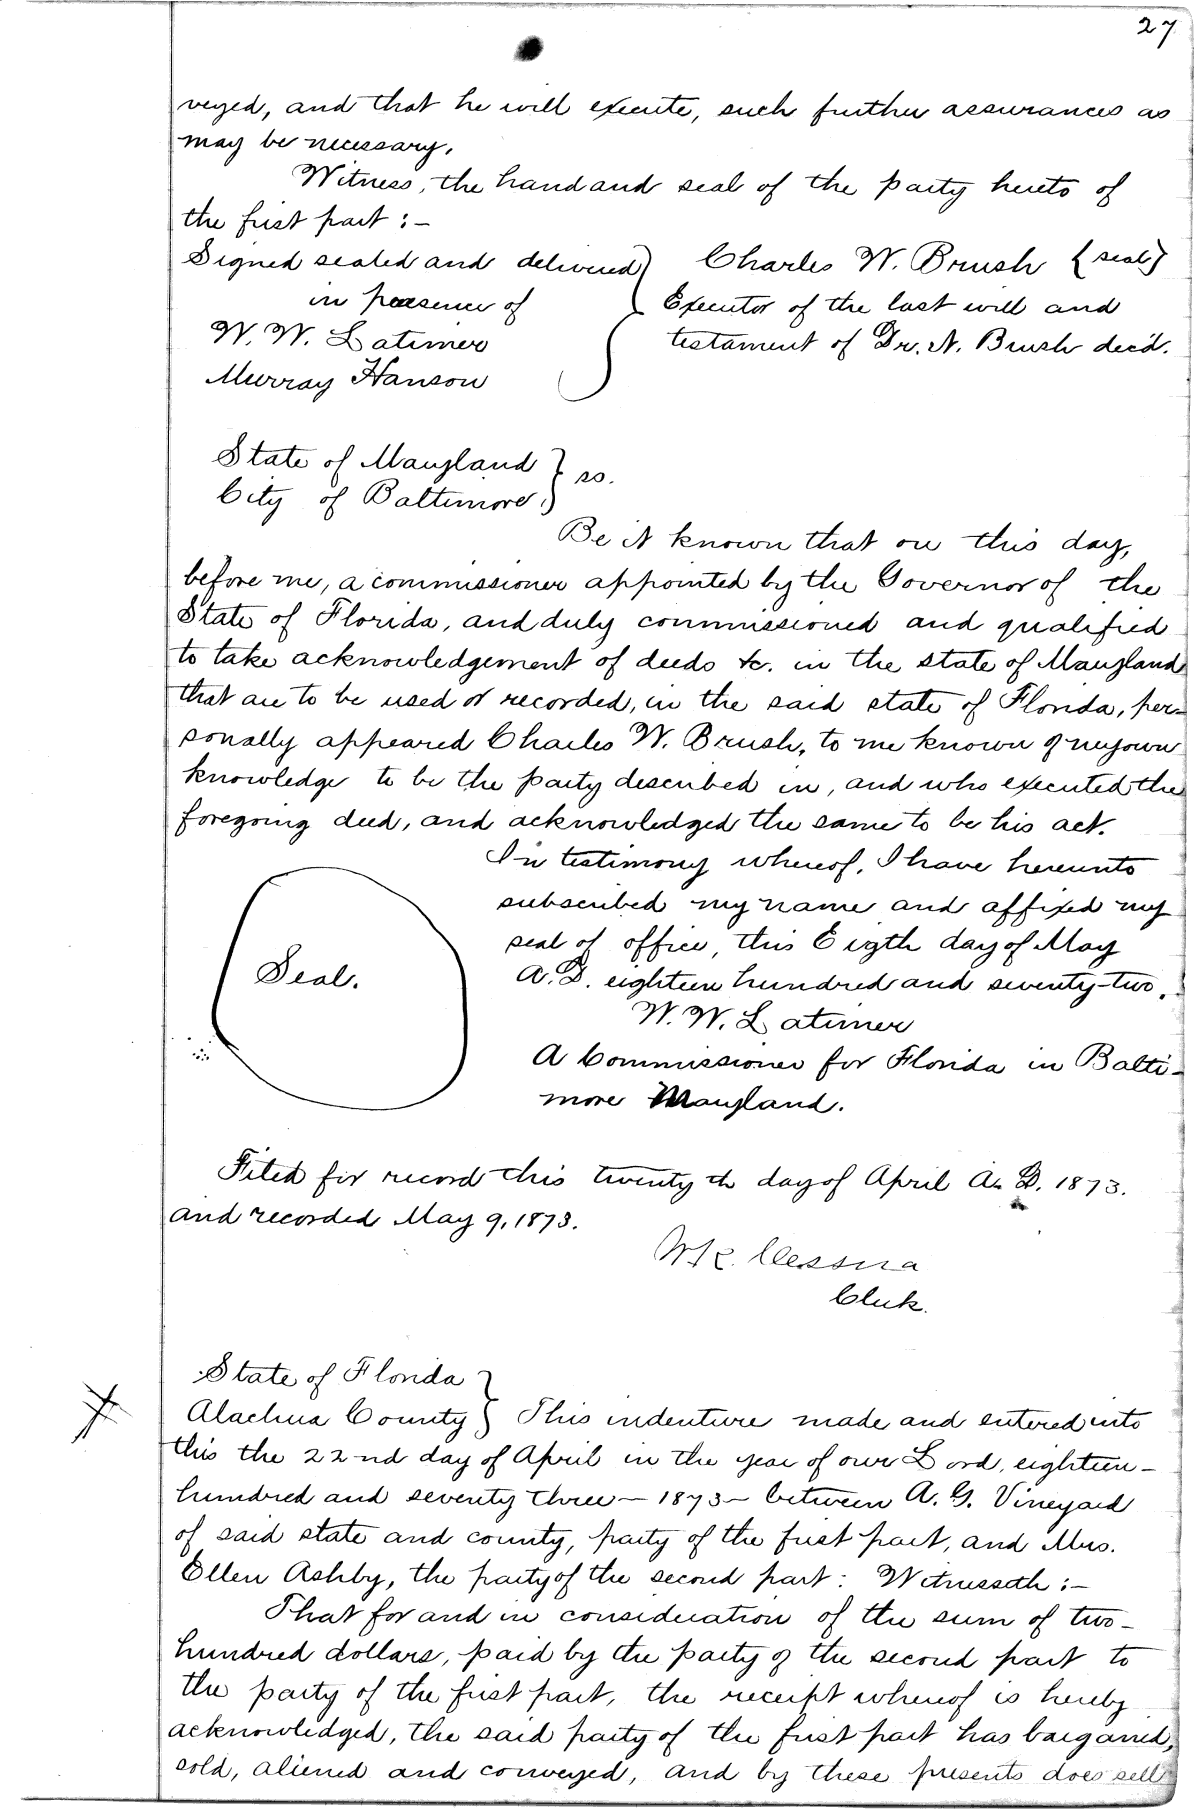 27
veyed, and that he will execute, such further assurances as
may be necessary.
Witness, the hand and seal of the party hereto of
the first part :-
Signed sealed and delivered
in presence of
W. W. Latimer
Murray Hanson
Charles W. Brush {seal}
Executor of the last will and
testament of Dr. N. Brush dec'd.
State of Maryland } ss.
City of Baltimore,
Be it known that on this day,
before me, a commissioner appointed by the Governor of the
State of Florida, and duly commissioned and qualified
to take acknowledgement of deeds &c. in the state of Maryland
that are to be used or recorded, in the said state of Florida, per-
sonally appeared Charles W. Brush, to me known of my own
knowledge to be the party described in, and who executed the
foregoing deed, and acknowledged the same to be his act.
In testimony whereof, I have hereunto
subscribed my name and affixed my
seal of office, this Eigth day of May
A. D. eighteen hundred and seventy-two.
Seal.
W. W. Latimer
A Commissioner for Florida in Balti-
more Maryland.
Filed for record this twentyth day of April A. D. 1873.
and recorded May 9, 1873.
W K. Cessna
Clerk.
State of Florida }
Alachua County } This indenture made and entered into
this the 22nd day of April in the year of our Lord, eighteen-
hundred and seventy three - 1873 - between A. G. Vineyard
of said state and county, party of the first part, and Mrs.
Ellen Ashby, the party of the second part: Witnesseth :-
That for and in consideration of the sum of two-
hundred dollars, paid by the party of the second part to
the party of the first part, the receipt whereof is hereby
acknowledged, the said party of the first part has bargained,
sold, aliened and conveyed, and by these presents does sell